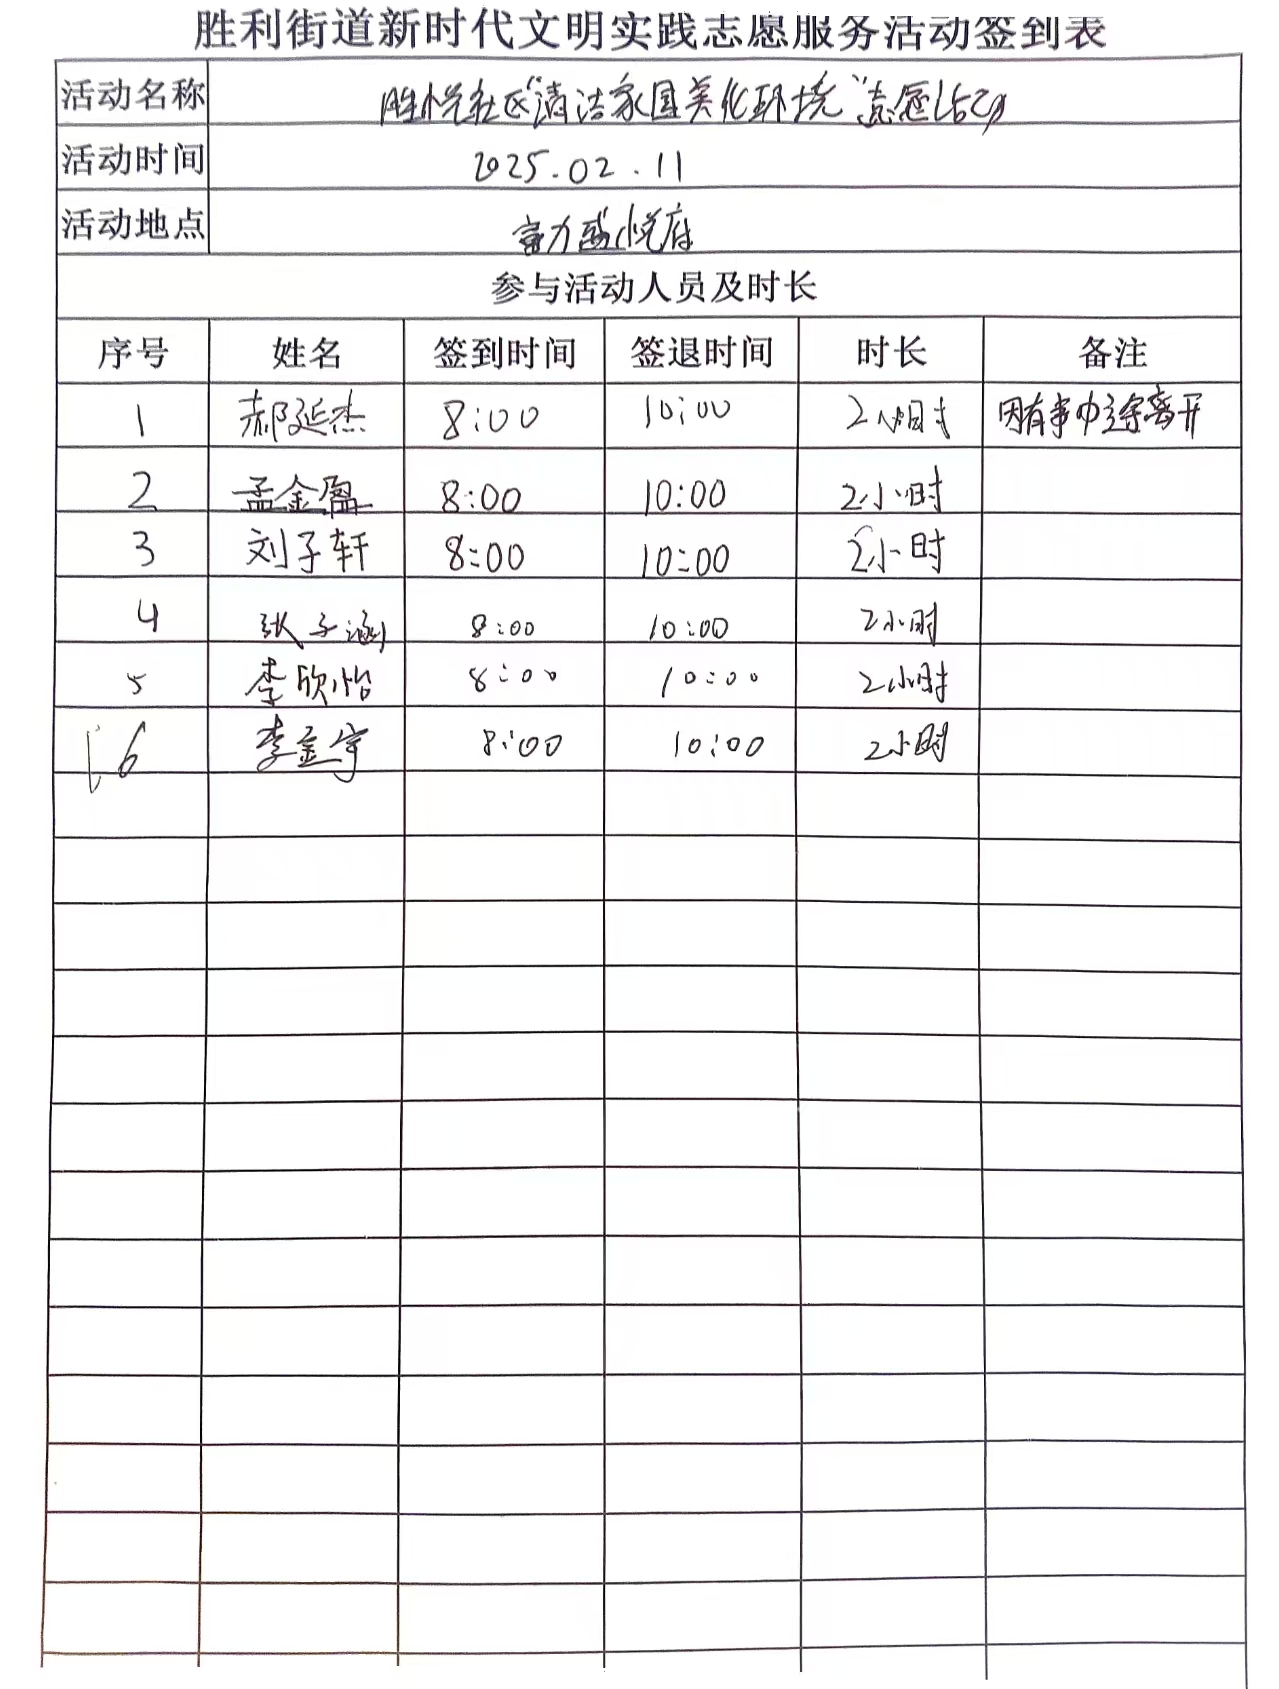 胜利街道新时代文明实践志愿服务活动签到表
活动名称 胜悦社区“清洁家园美化环境”志愿活动
活动时间 2025.02.11
活动地点 富力盛悦府
参与活动人员及时长
序号 姓名 签到时间 签退时间 时长 备注
1 郝延杰 8:00 10:00 2小时 因有事中途离开
2 孟金盈 8:00 10:00 2小时
3 刘子轩 8:00 10:00 2小时
4 张子涵 8:00 10:00 2小时
5 李欣怡 8:00 10:00 2小时
6 李金宇 8:00 10:00 2小时